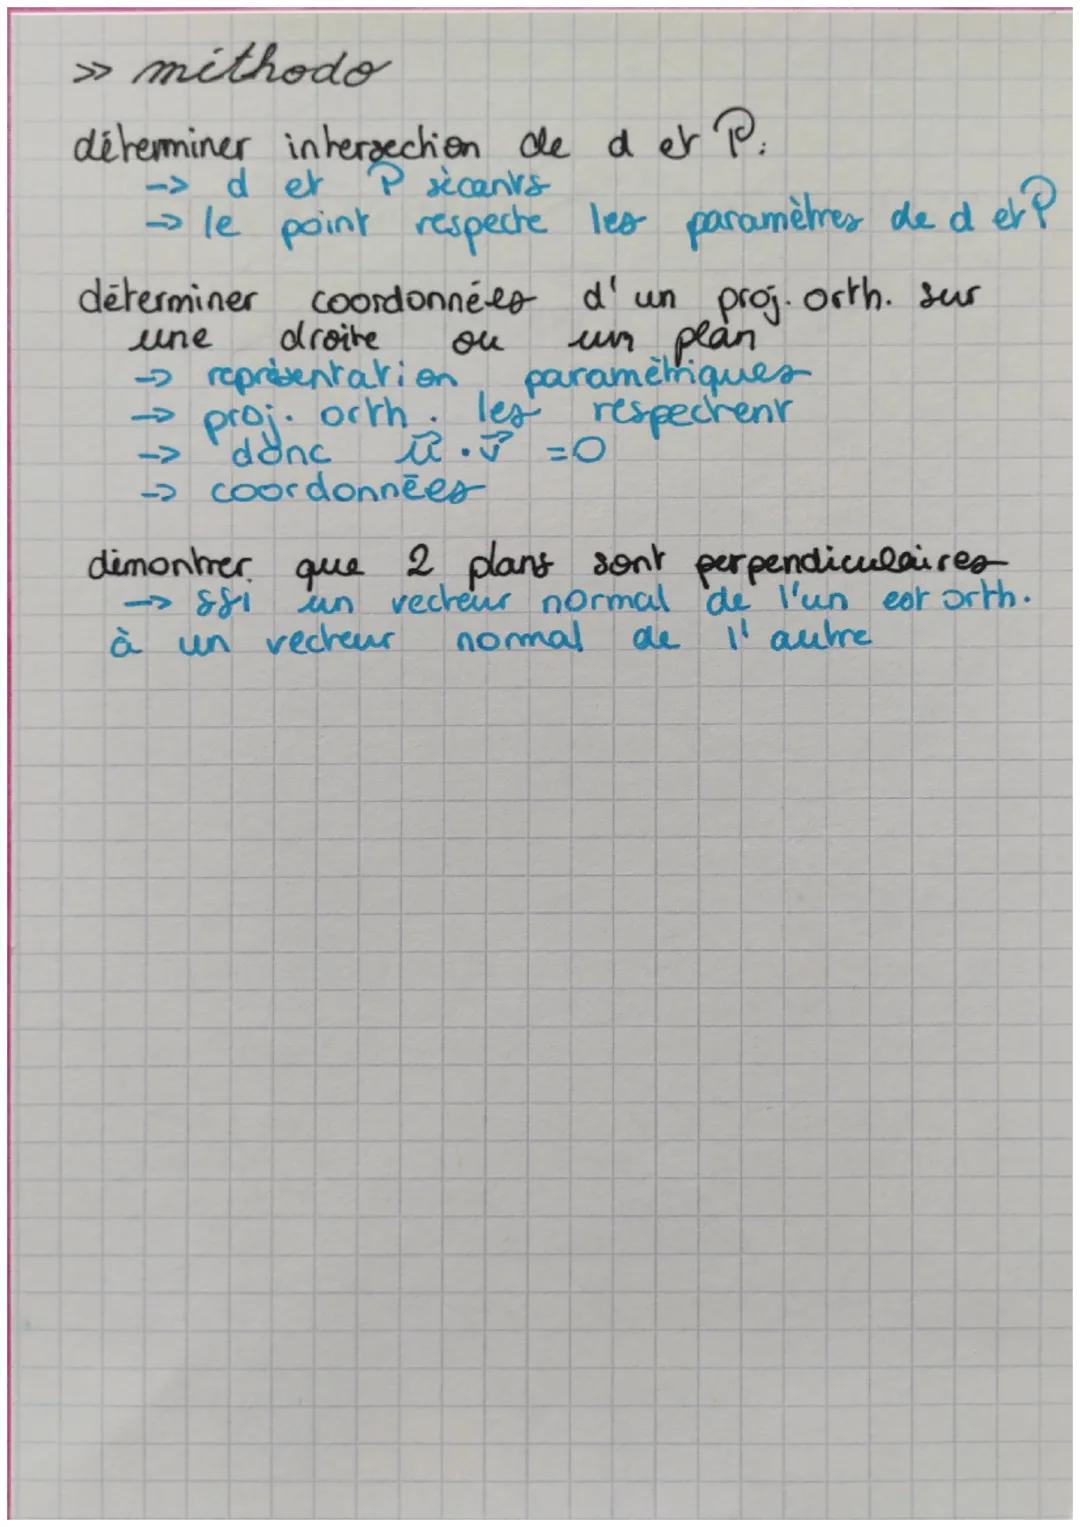 >> méthodo
déterminer intersection de d et P:
-> d et P sécants
-> le point respecte les paramètres de d et P
déterminer coordonnées d'un proj. orth. sur
une droite ou un plan
-> représentation paramétriques
-> proj. orth. les respectent
-> donc u⃗ . v⃗ = 0
-> coordonnées
démontrer que 2 plans sont perpendiculaires
-> ssi un vecteur normal de l'un est orth.
à un vecteur normal de l'autre